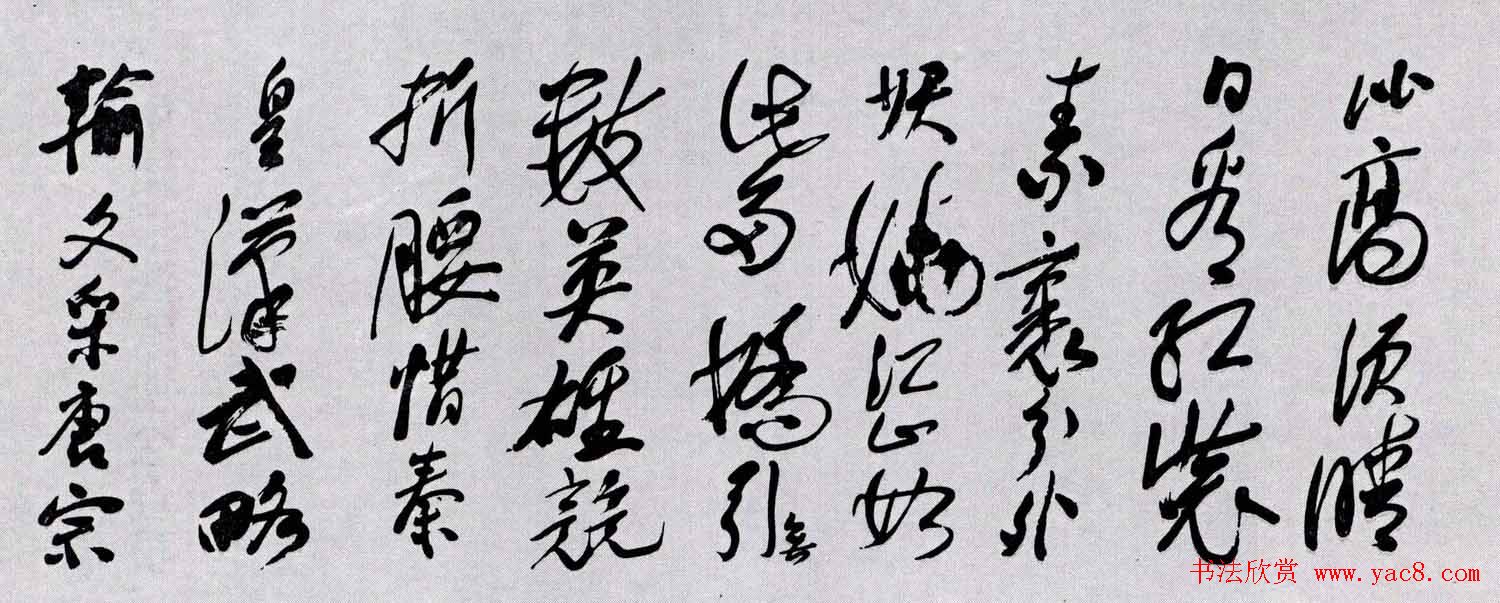 比高须晴
日看红裝
素裹分外
妖嬈江山如
此多嬌引無
數英雄競
折腰惜秦
皇漢武略
輸文采唐宗
书法欣赏 www.yac8.com